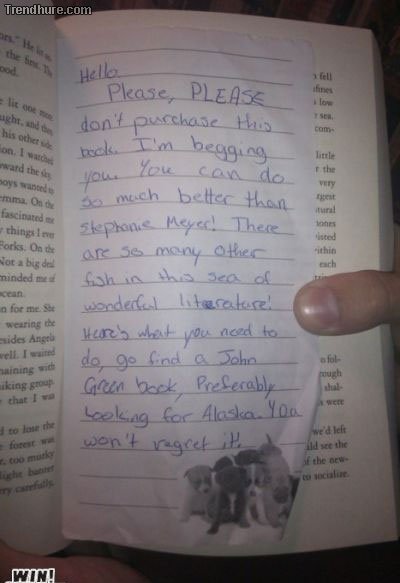 Trendhure.com
the first. Th
ood.
e lit one more
ught, and they
his other side
on. I watched
ward the sky.
oys wanted to
mma. On the
fascinated me
things I ever
Forks. On the
Not a big deal
minded me of
cean.
n for me. She
wearing the
esides Angela
well. I waited
maining with
iking group.
that I was
d to lose the
forest was
r, too murky
light banter
ery carefully,
Hello
Please, PLEASE
don't purchase this
book. I'm begging
you. You can do
so much better than
Stephanie Meyer! There
are so many other
fish in this sea of
wonderful literature!
Here's what you need to
do, go find a John
Green book, Preferably
Looking for Alaska. You
won't regret it!
fell
fines
low
sea.
com-
little
r the
very
rgest
atural
tones
isted
ithin
each
o fol-
rough
shal-
s were
we'd left
uld see the
of the new-
to socialize.
WIN!